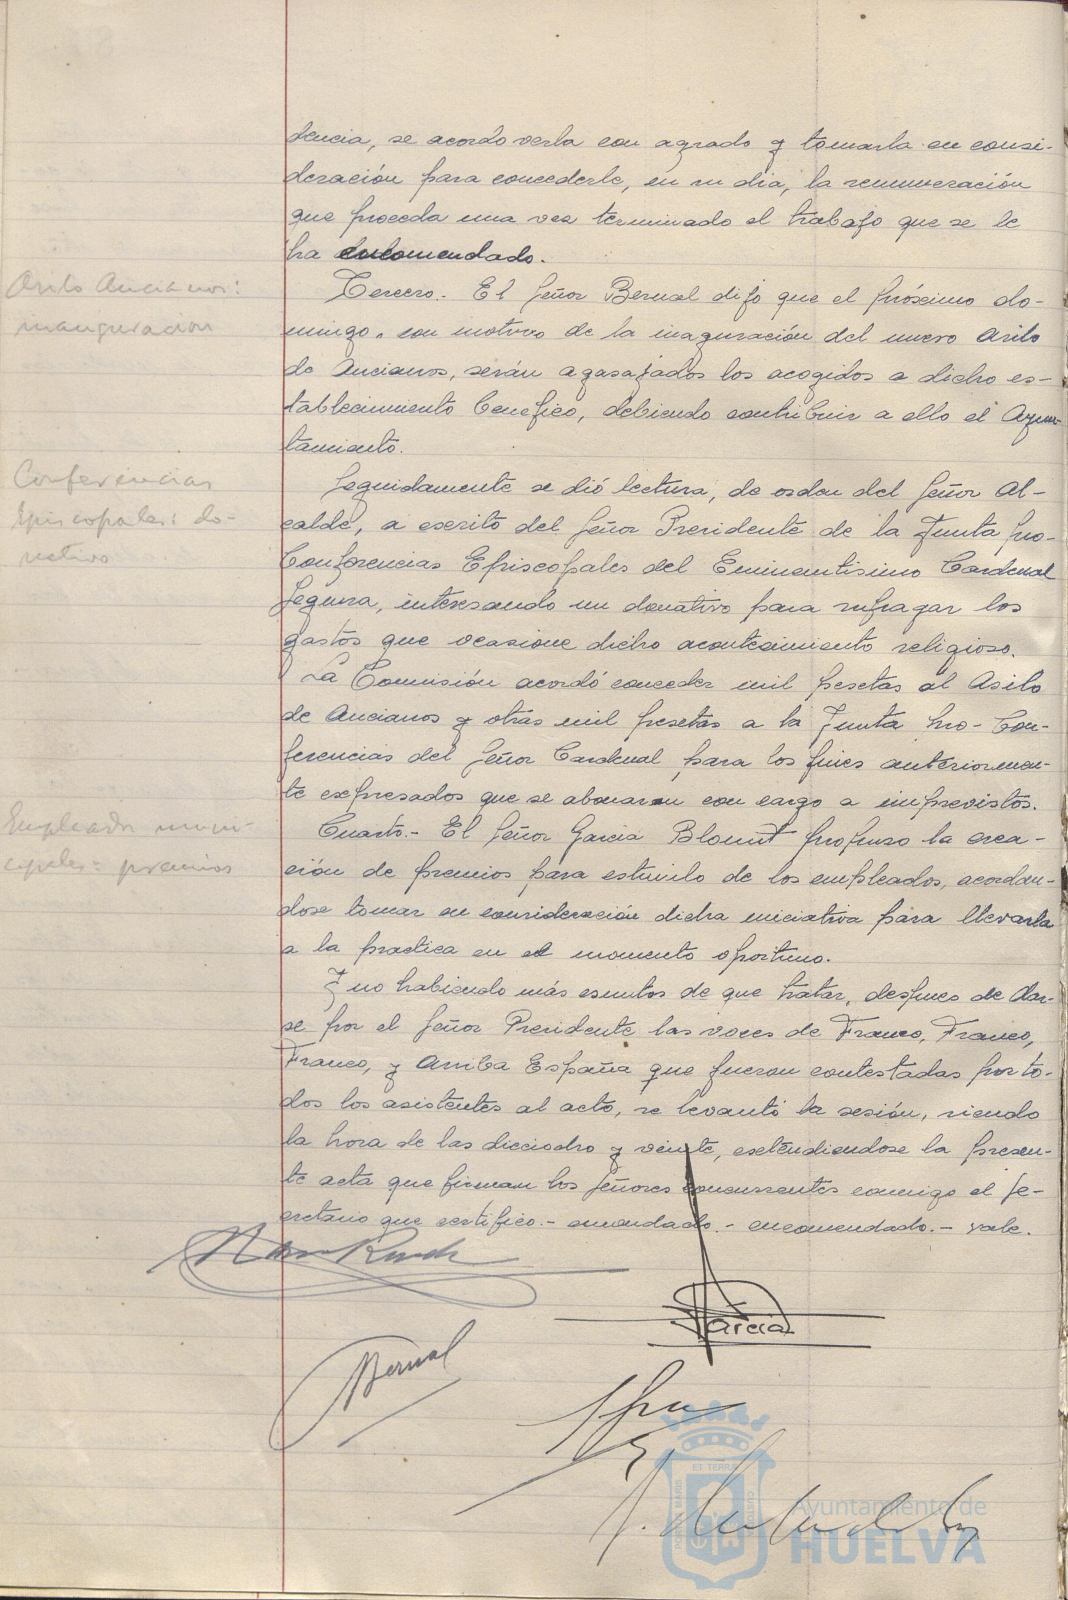 dencia, se acordo verla con agrado y tomarla en consi-
deración para concederle, en su dia, la remuneración
que proceda una vez terminado el trabajo que se le
ha encomendado.
Asilo Ancianos:
inauguración
Tercero.- El Señor Bernal dijo que el próximo do-
mingo, con motivo de la inaguración del nuevo Asilo
de Ancianos, serán agasajados los acogidos a dicho es-
tablecimiento benefico, debiendo contribuir a ello el Ayun-
tamiento.
Conferencias
Episcopales: do-
nativo
Seguidamente se dió lectura, de orden del Señor Al-
calde, a escrito del Señor Presidente de la Junta pro-
Conferencias Episcopales del Eminentisimo Cardenal
Segura, interesando un donativo para sufragar los
gastos que ocasione dicho acontecimiento religioso.
La Comisión acordó conceder mil pesetas al Asilo
de Ancianos y otras mil pesetas a la Junta pro-Con-
ferencias del Señor Cardenal para los fines anteriormen-
te expresados que se abonaran con cargo a imprevistos.
Empleados muni-
cipales: premios
Cuarto.- El Señor Garcia Blount propuso la crea-
ción de premios para estimulo de los empleados, acordan-
dose tomar en consideración dicha iniciativa para llevarla
a la practica en el momento oportuno.
Y no habiendo más asuntos de que tratar, despues de dar-
se por el Señor Presidente las voces de Franco, Franco,
Franco, y Arriba España que fueron contestadas por to-
dos los asistentes al acto, se levantó la sesión, siendo
la hora de las dieciocho y veinte, extendiendose la presen-
te acta que firman los Señores concurrentes conmigo el Se-
cretario que certifico.- enmendado.- encomendado.- vale.
Garcia
Bernal
Ayuntamiento de
HUELVA